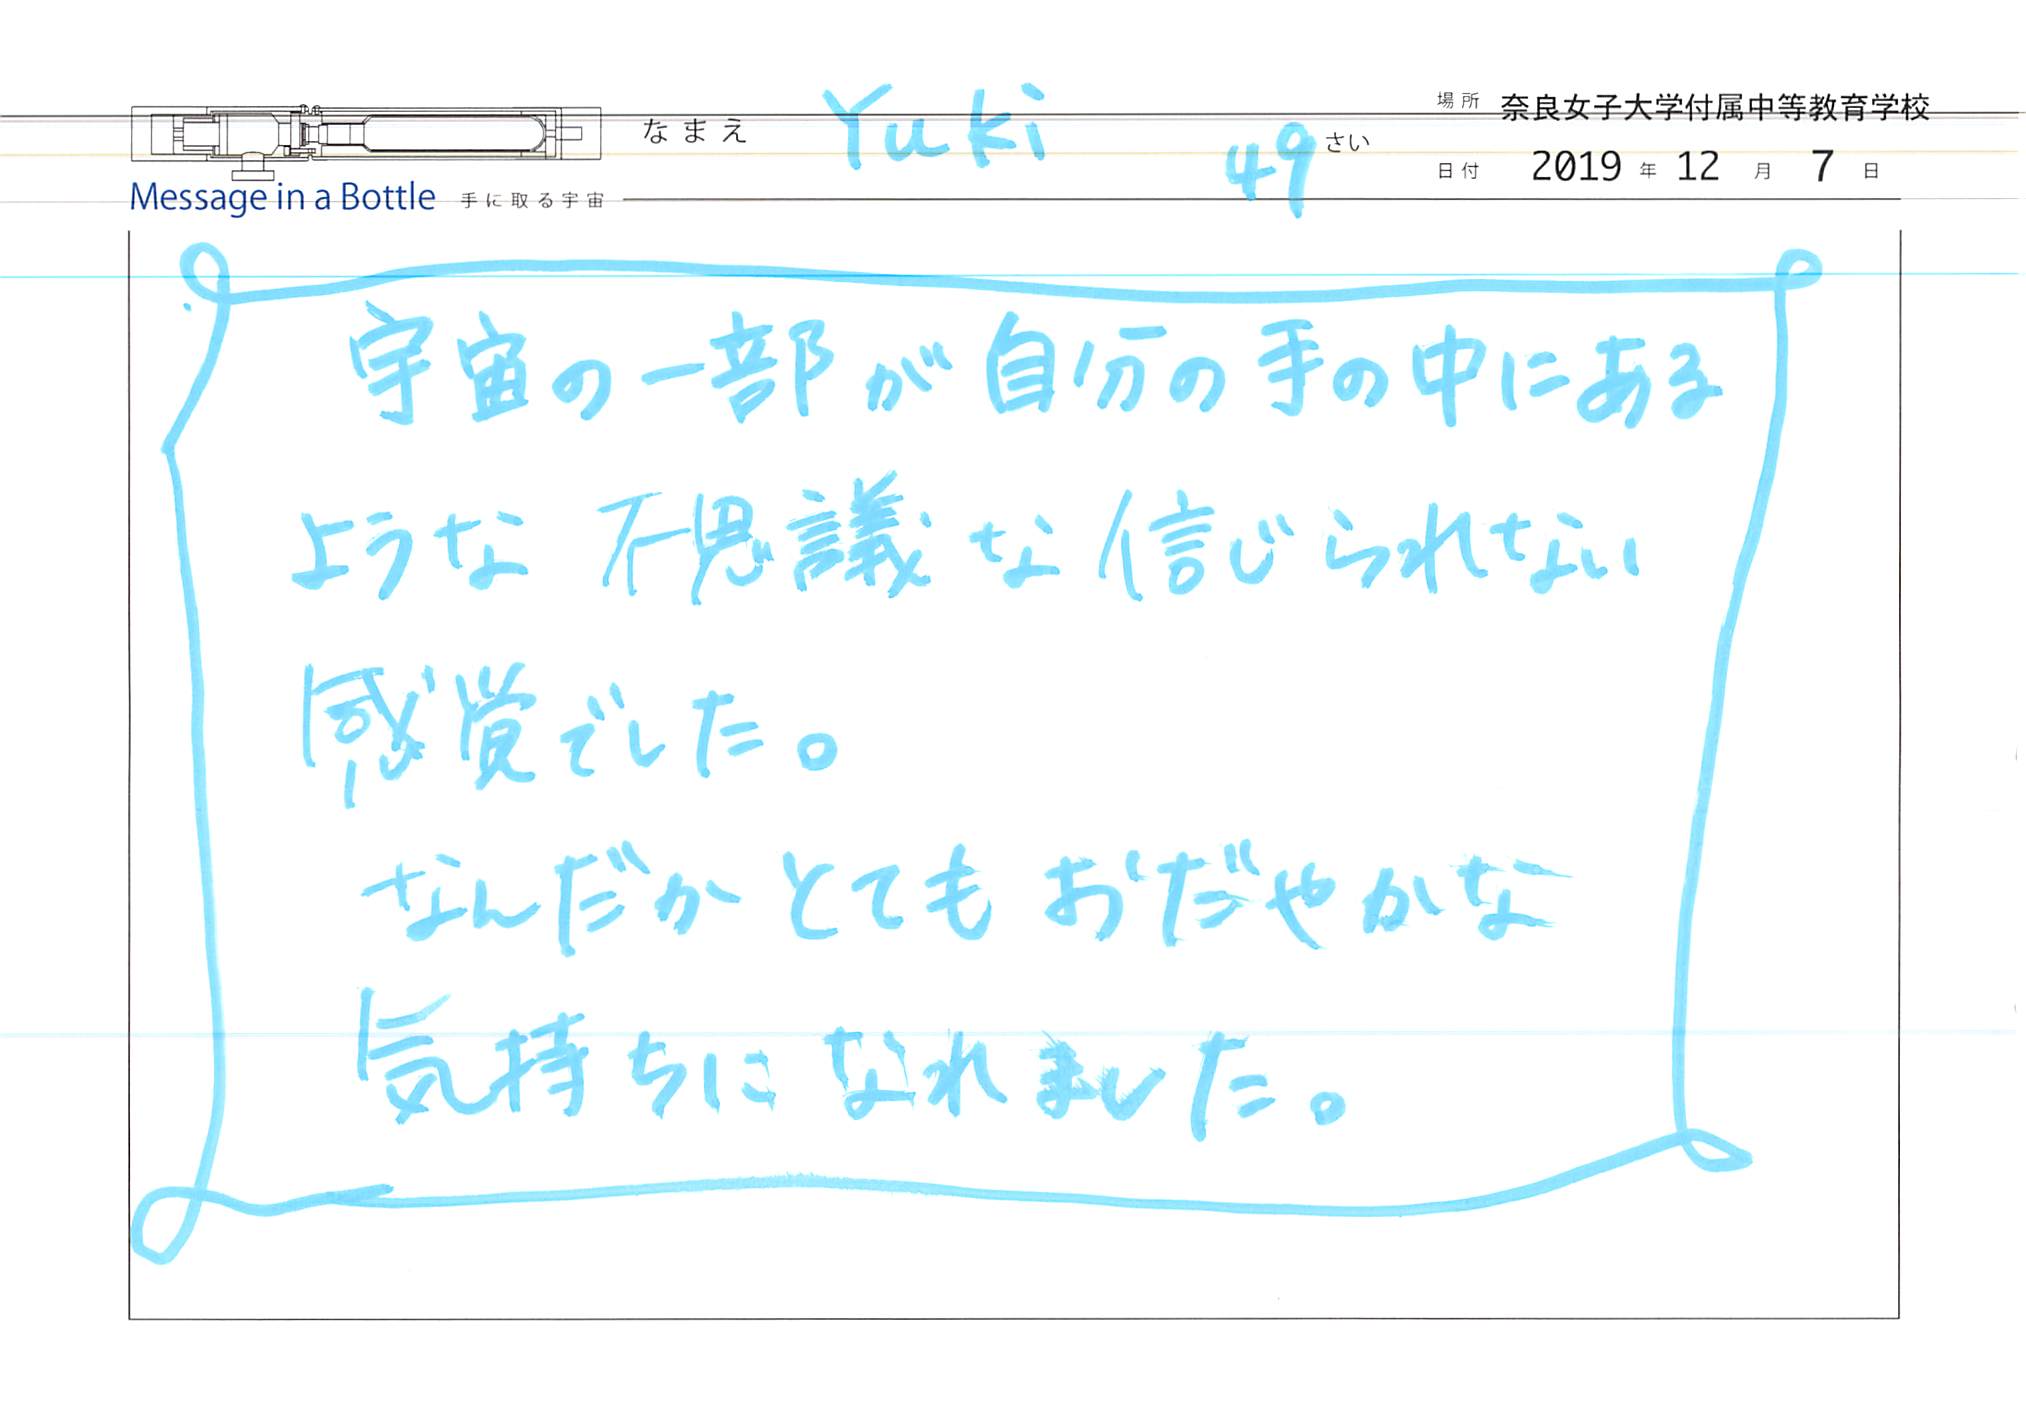 なまえ Yuki 49 さい
場所 奈良女子大学付属中等教育学校
日付 2019 年 12 月 7 日
Message in a Bottle 手に取る宇宙
宇宙の一部が自分の手の中にある
ような不思議な信じられない
感覚でした。
なんだかとてもおだやかな
気持ちになれました。